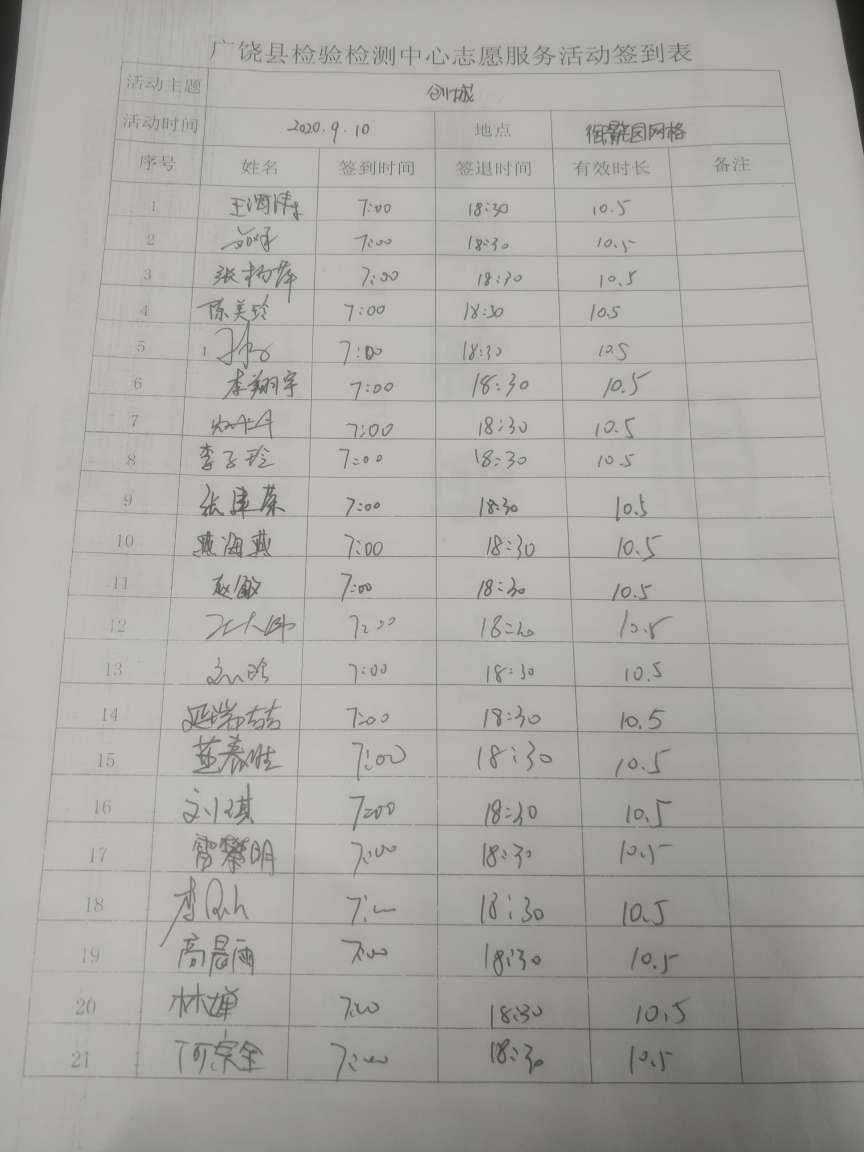 广饶县检验检测中心志愿服务活动签到表
活动主题 创城
活动时间 2020.9.10 地点 园网格
序号 姓名 签到时间 签退时间 有效时长 备注
1 7:00 18:30 10.5
2 7:00 18:30 10.5
3 7:00 18:30 10.5
4 陈美玲 7:00 18:30 10.5
5 7:00 18:30 10.5
6 李翔宇 7:00 18:30 10.5
7 7:00 18:30 10.5
8 李子玲 7:00 18:30 10.5
9 7:00 18:30 10.5
10 燕海燕 7:00 18:30 10.5
11 赵敏 7:00 18:30 10.5
12 7:00 18:30 10.5
13 7:00 18:30 10.5
14 7:00 18:30 10.5
15 燕春胜 7:00 18:30 10.5
16 刘琪 7:00 18:30 10.5
17 7:00 18:30 10.5
18 7:00 18:30 10.5
19 高晨雨 7:00 18:30 10.5
20 林婵 7:00 18:30 10.5
21 7:00 18:30 10.5